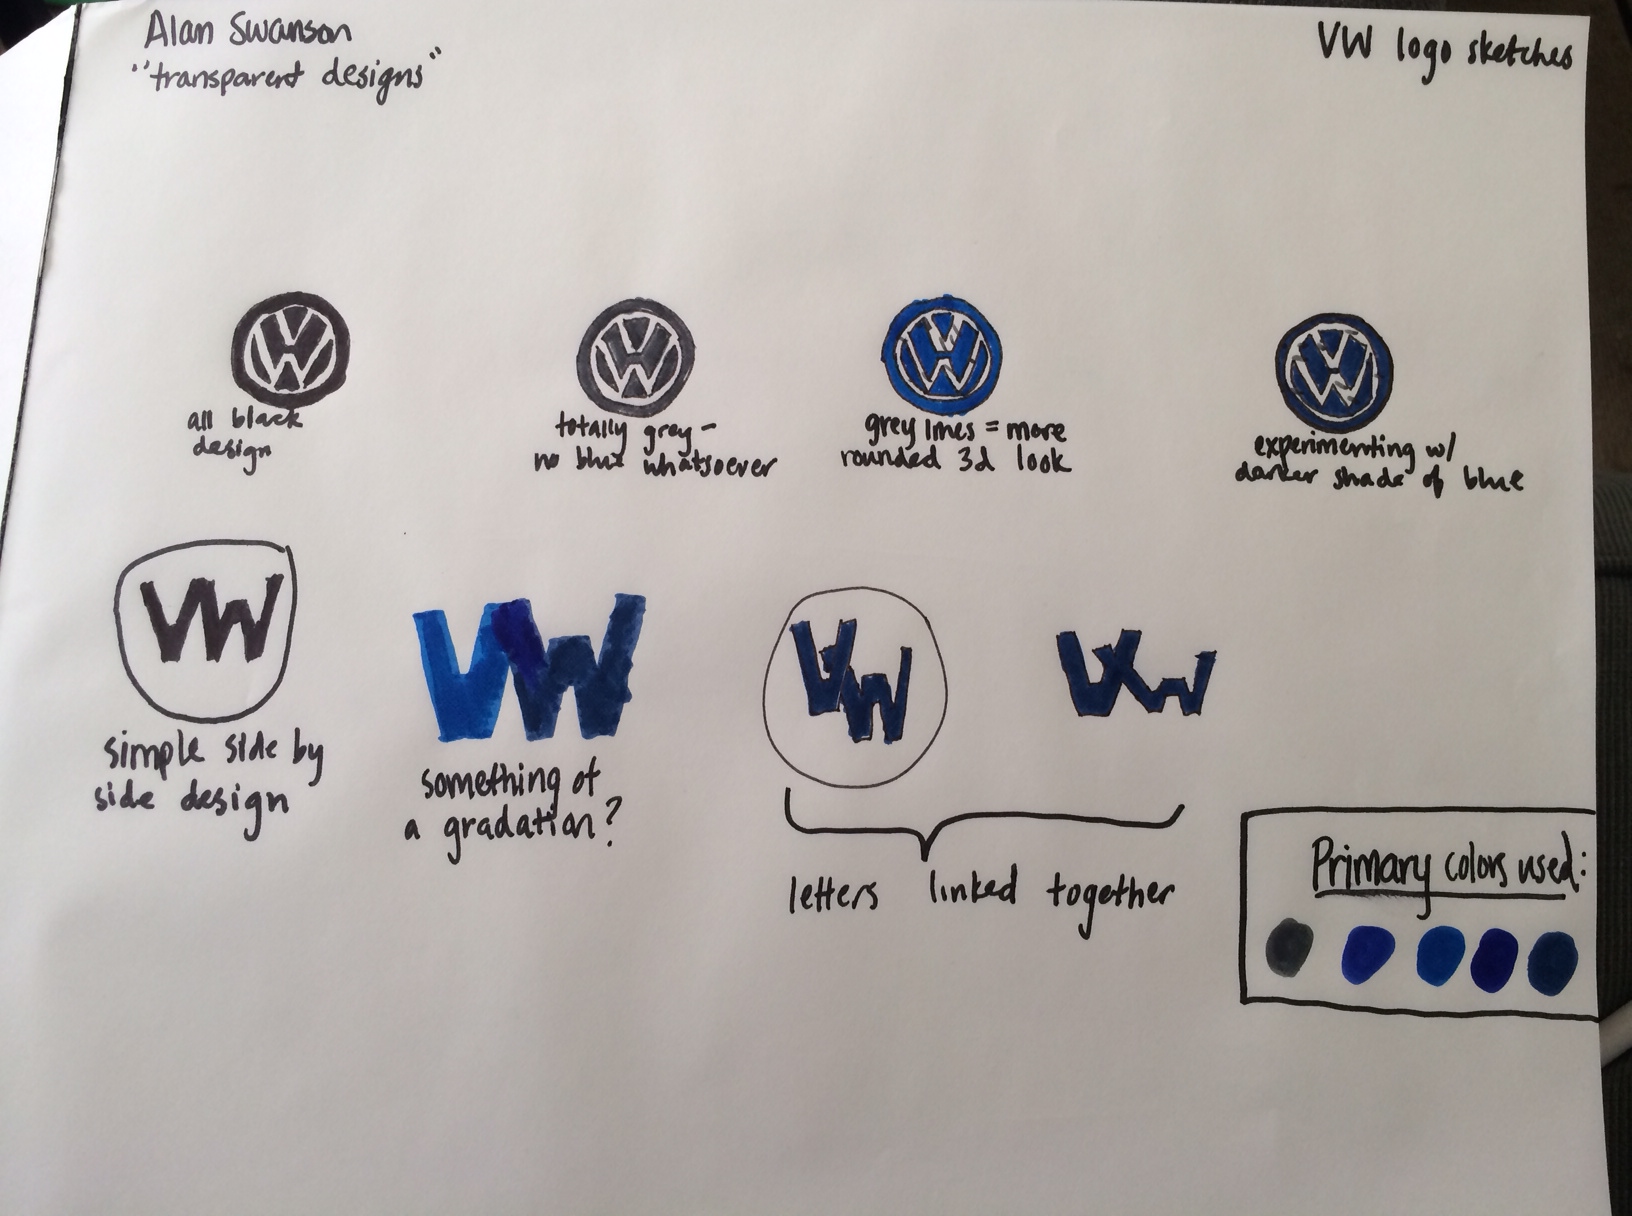 Alan Swanson
"transparent designs"
VW logo sketches
all black
design
totally grey -
no blue whatsoever
grey lines = more
rounded 3d look
experimenting w/
darker shade of blue
VW
simple side by
side design
VW
something of
a gradation?
VW
VW
letters linked together
Primary colors used: